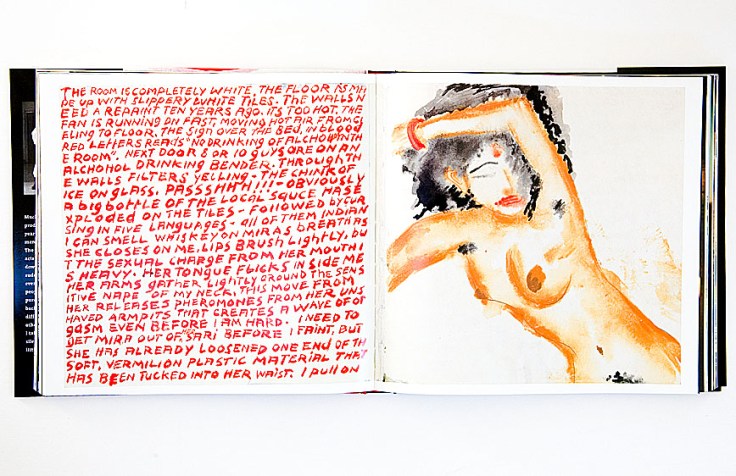 THE ROOM IS COMPLETELY WHITE. THE FLOOR IS MA
DE UP WITH SLIPPERY WHITE TILES. THE WALLS N
EED A REPAINT TEN YEARS AGO. IT'S TOO HOT. THE
FAN IS RUNNING ON FAST MOVING HOT AIR FROM CI
ELING TO FLOOR. THE SIGN OVER THE BED, IN BLOOD
RED LETTERS READS "NO DRINKING OF ALCHOHOL IN TH
E ROOM". NEXT DOOR 8 OR 10 GUYS ARE ON AN
ALCHOHOL DRINKING BENDER. THROUGH TH
E WALLS FILTERS YELLING - THE CHINK OF
ICE ON GLASS. PASSSHHH!!! - OBVIOUSLY
A BIG BOTTLE OF THE LOCAL SAUCE HAS E
XPLODED ON THE TILES - FOLLOWED BY CUR
SING IN FIVE LANGUAGES - ALL OF THEM INDIAN
I CAN SMELL WHISKEY ON MIRAS BREATH AS
SHE CLOSES ON ME. LIPS BRUSH LIGHTLY, BU
T THE SEXUAL CHARGE FROM HER MOUTH I
S HEAVY. HER TONGUE FLICKS IN SIDE ME
HER ARMS GATHER LIGHTLY AROUND THE SENS
ITIVE NAPE OF MY NECK. THIS MOVE FROM
HER RELEASES PHEROMONES FROM HER UNS
HAVED ARMPITS THAT CREATES A WAVE OF OR
GASM EVEN BEFORE I AM HARD. I NEED TO
GET MIRA OUT OF HER SARI BEFORE I FAINT, BUT
SHE HAS ALREADY LOOSENED ONE END OF TH
SOFT, VERMILION PLASTIC MATERIAL THAT
HAS BEEN TUCKED INTO HER WAIST. I PULL ON